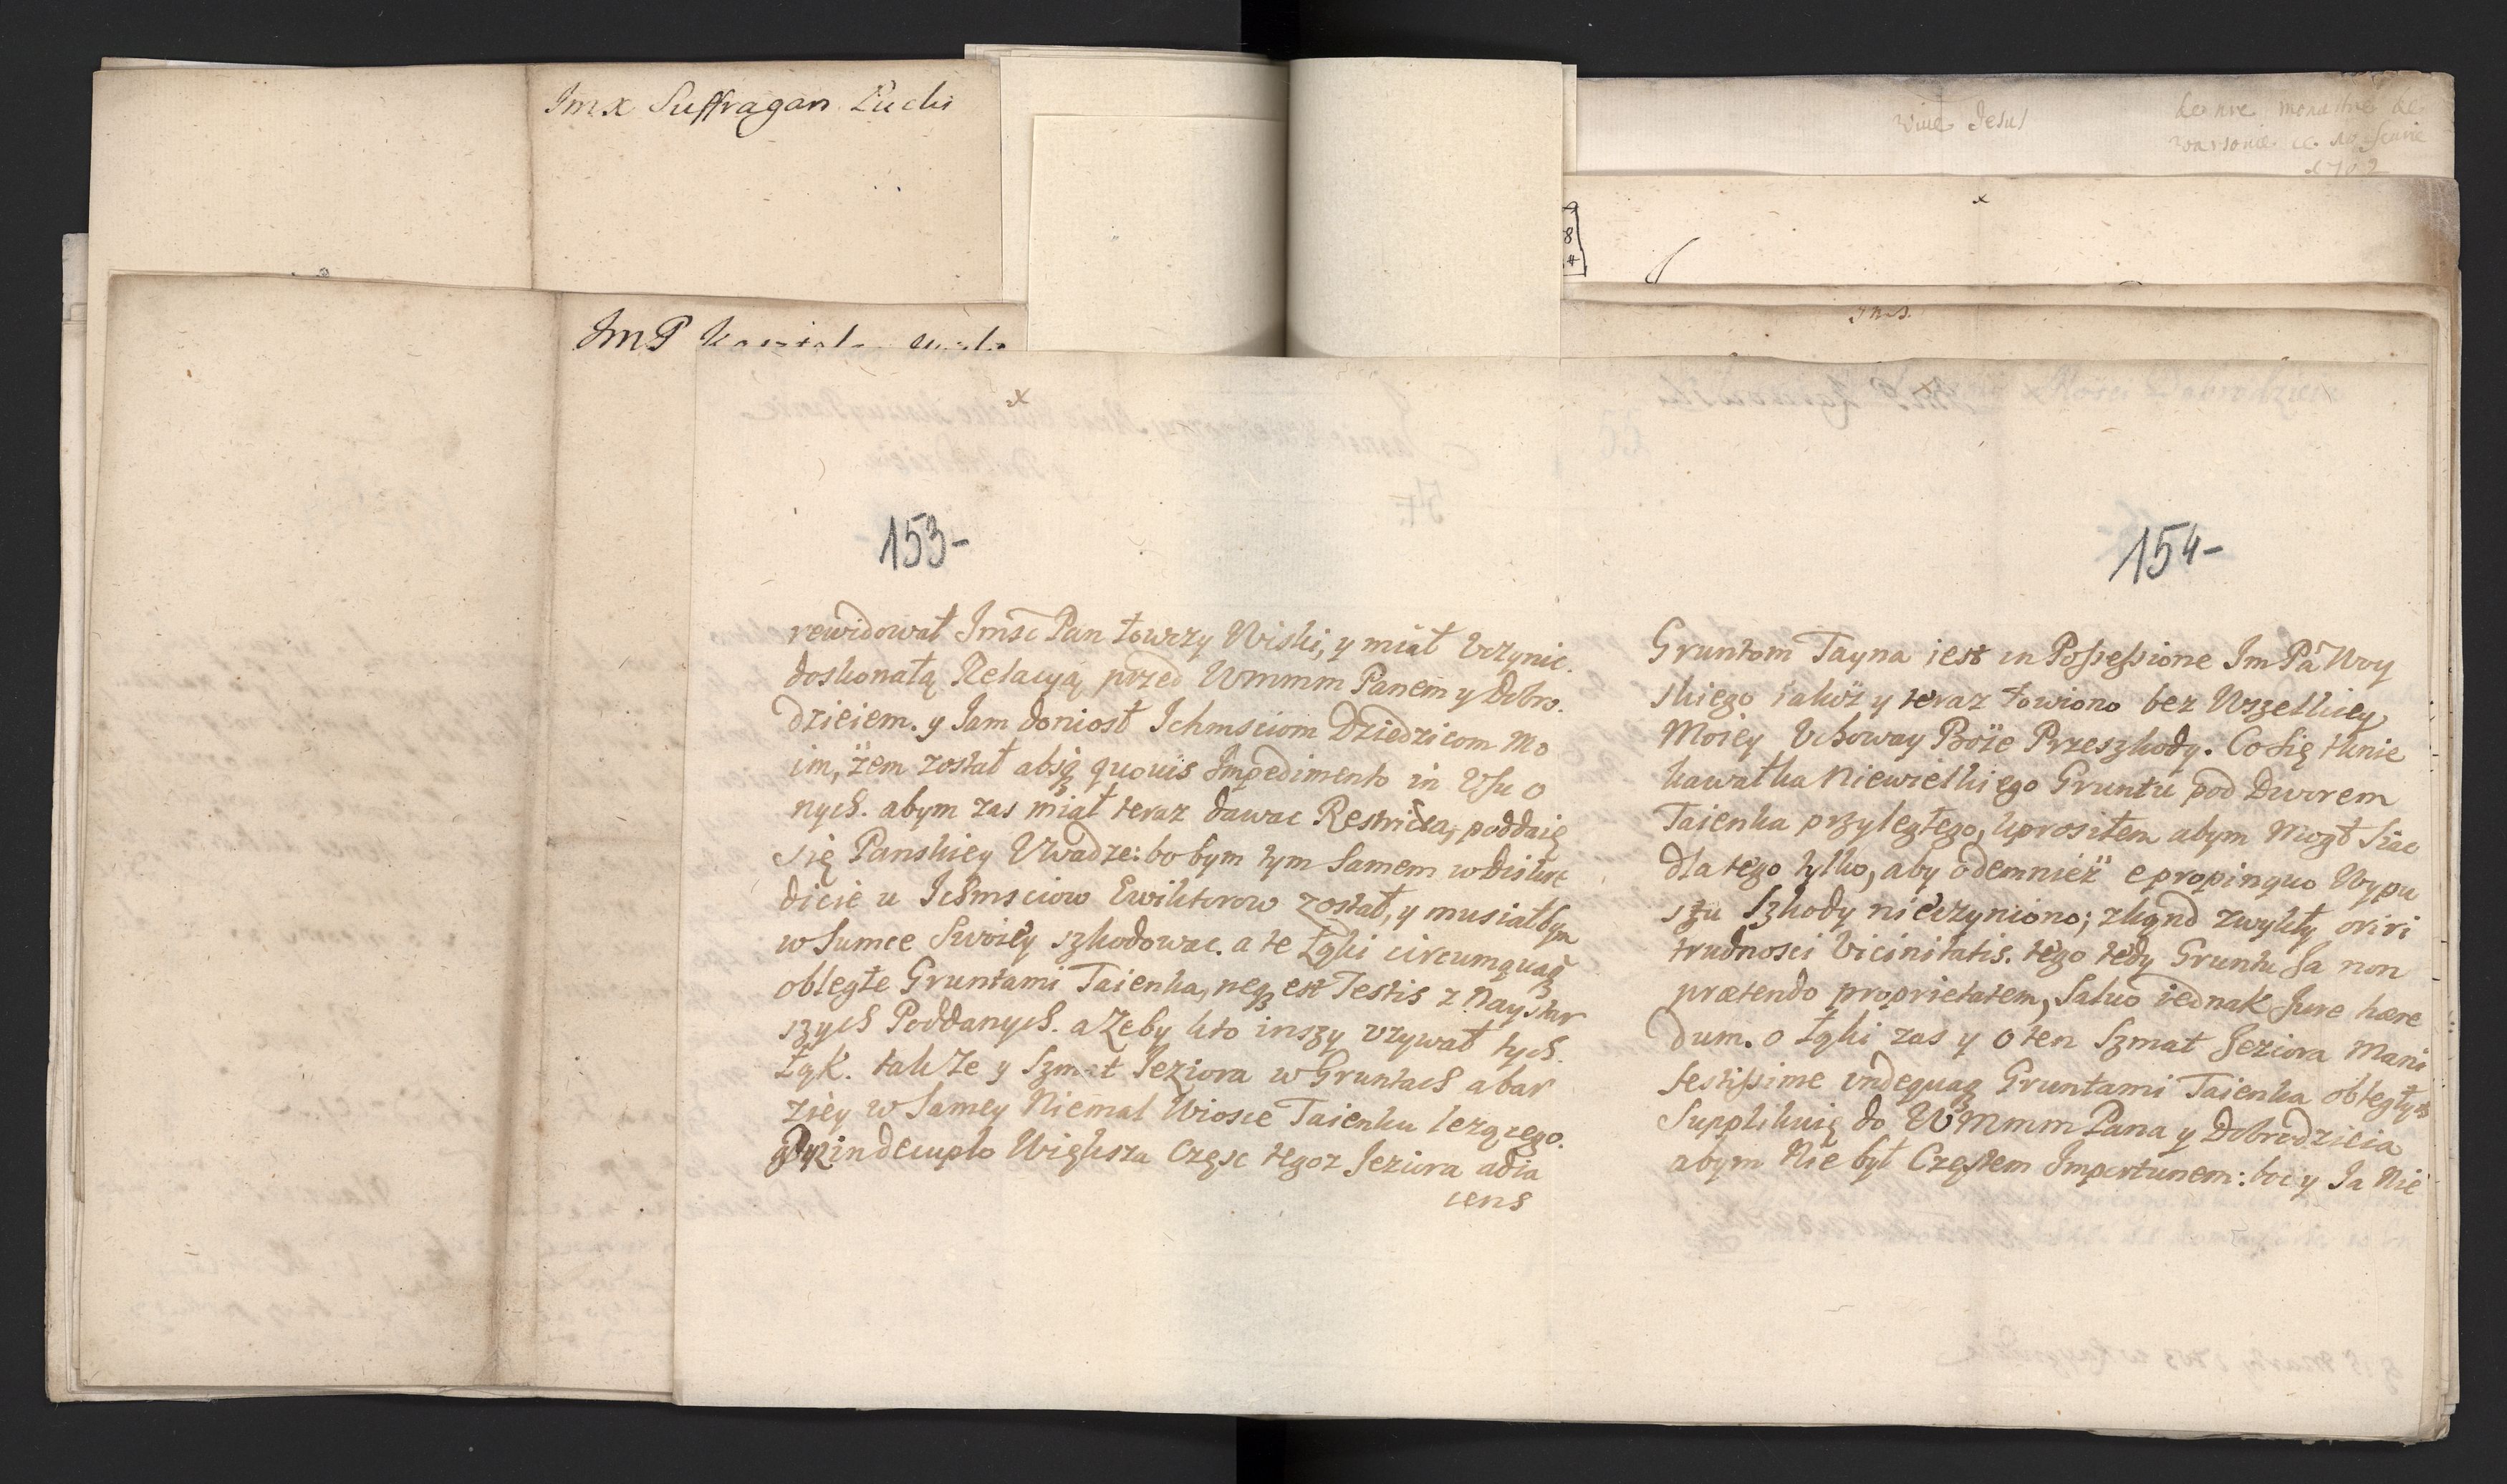 Jmx Suffragan Łucki
JmP
Vive Jesus
de nre monastre de
1702
Jms.
153-
rewidował Jmsc Pan Łowczy Wiski, y miał Vczynic
doskonałą Relacyą przed Wmmm Panem y Dobro
dzieiem. y Jam doniosł Ichmsciom Dziedzicom Mo
im, żem został absq quovis Impedimento in Vsu o
nych. abym zas miał teraz dawac Restricta, poddaię
się Panskiey Vwadze: bo bym tym samem w Diskre
dicie u Ichmsciow Ewiktorow został, y musiałbym
w Sumce Swoiey szkodowac. a te Łąki circumquaq
obległe Gruntami Taienka, neq est Testis z Nayster
szych Poddanych. aZeby kto inszy vzywał tych
Łąk. takZe y Szmat Jeziora w Gruntach abar
ziey w Samey Niemal Wiosce Taienku lezącego.
in decuplo Większa Częsc tegoz Jeziora adia
cens
154-
Gruntom Tayna iest in Possessione Im Pã Woy
skiego iakoż y teraz łowiono bez Wszelkiey
Moiey Vchoway Boże Przeszkody. Co Się tknie
kawałka Niewielkiego Gruntu pod Dworem
Taienka przyległego, Vprosiłem abym Mogł Siac
dla tego tylko, aby odemnież e propinquo Wypu
stu Szkody nieczyniono; zkąnd zwykły oriri
trudnosci Vicinitatis. tego tedy Gruntu Ja non
prætendo proprietatem, Salvo iednak Jure hære
dum. o Łąki zas y o ten Szmat Jeziora Mani
festissime undequaq Gruntami Taienka obległych
Supplikuię do WMmm Pana y Dobrodzieia
abym Nie był Częstem Importunem: bo y Ja Nie